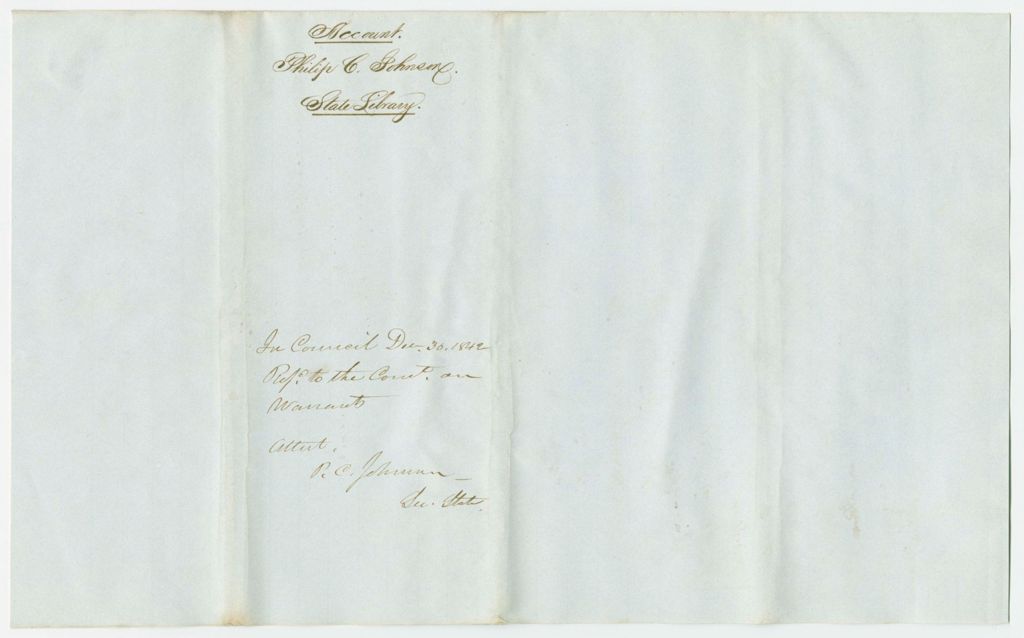 Account.
Philip C. Johnson.
State Library.
In Council Dec. 30. 1842
Ref.d to the Comt. on
Warrants
Attest,
P. C. Johnson
Sec. State.